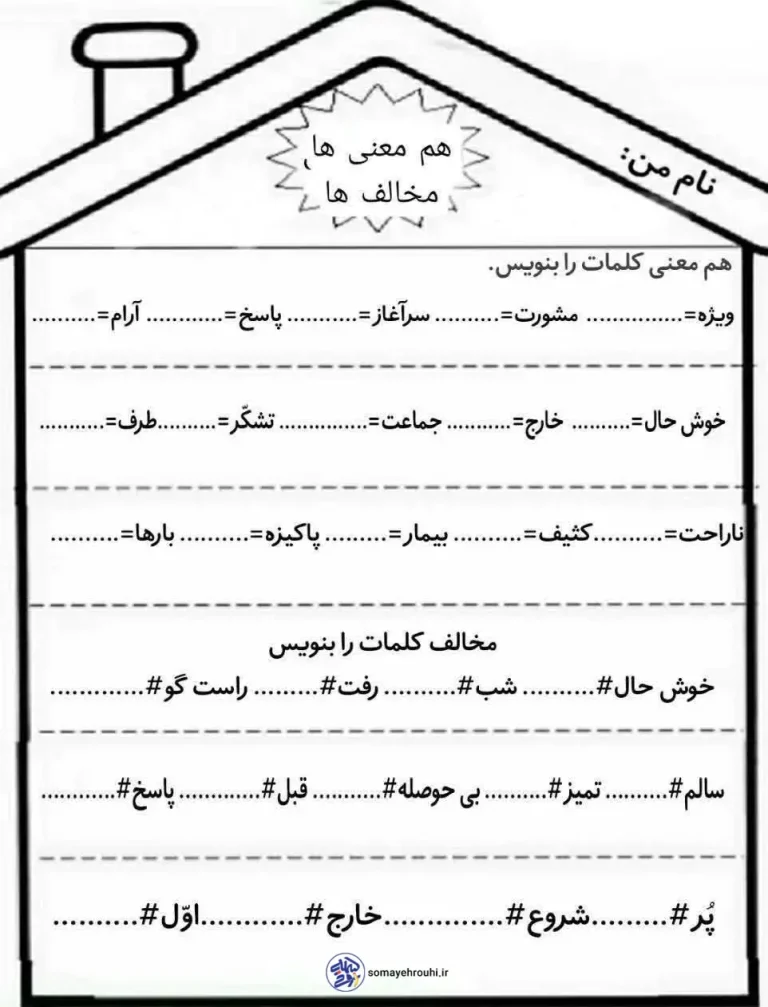 هم معنی ها،
مخالف ها
نام من:
هم معنی کلمات را بنویس.
ویژه=............... مشورت=.......... سرآغاز=........... پاسخ=............ آرام=..........
خوش حال=.......... خارج=........... جماعت=............... تشکّر=..........طرف=...........
ناراحت=...........کثیف=........... بیمار=.......... پاکیزه=........... بارها=...........
مخالف کلمات را بنویس
خوش حال#.......... شب#.......... رفت#......... راست گو#.............
سالم#.......... تمیز#.......... بی حوصله#........... قبل#............. پاسخ#............
پُر#.........شروع#..............خارج#............اوّل#..........
somayehrouhi.ir